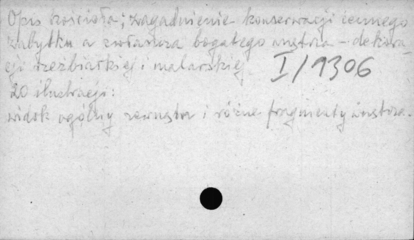 Opis kościoła; zagadnienie konserwacji cennego
zabytku a zwłaszcza bogatego wnętrza – dekora-
cji rzeźbiarskiej i malarskiej. I/9306
20 ilustracji:
widok ogólny zewnątrz i różne fragmenty wnętrza.